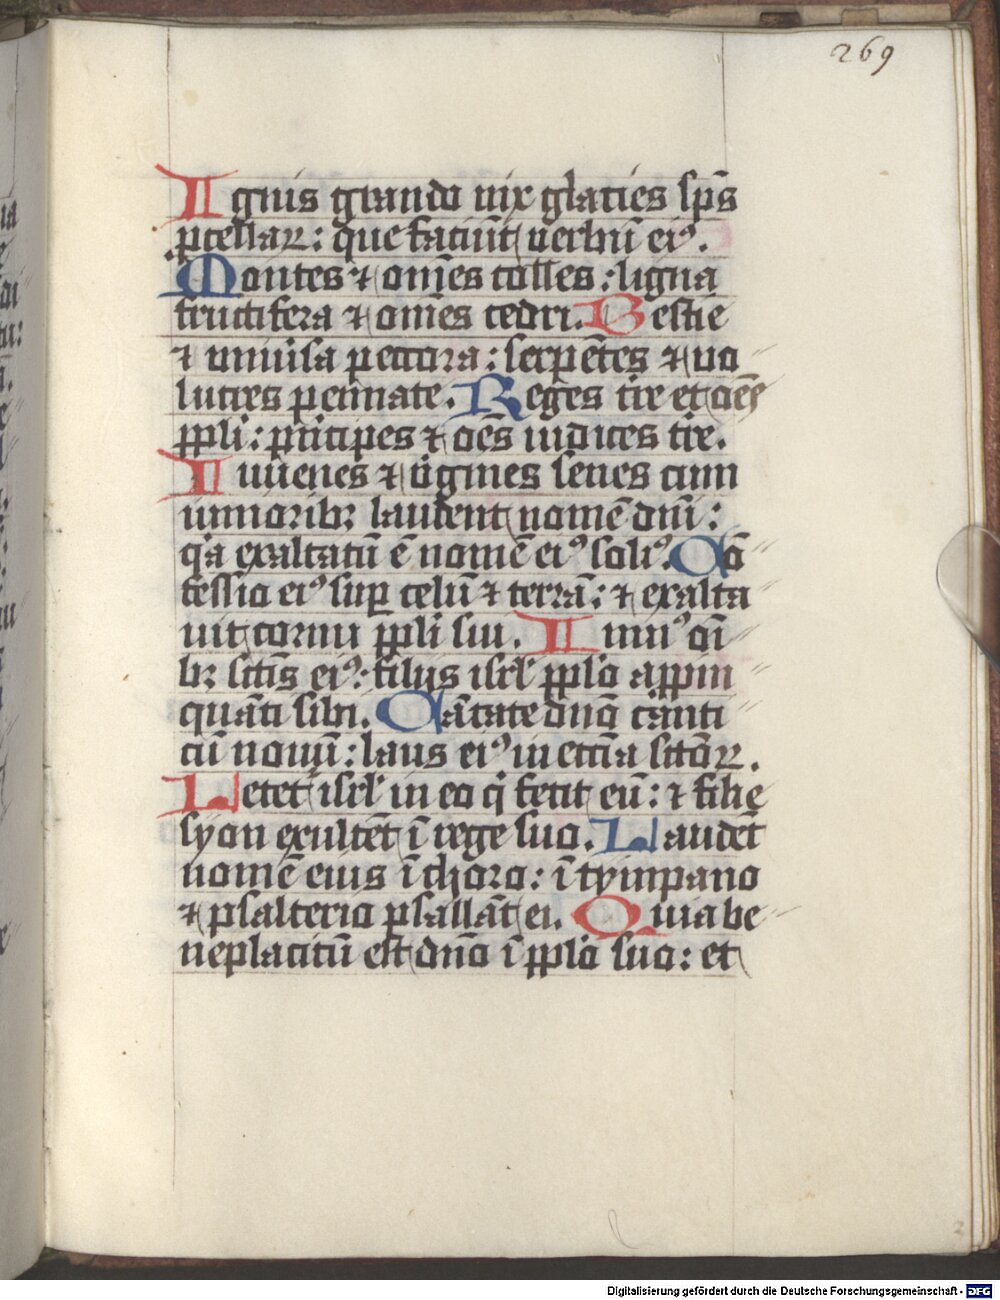 269
Ignis grando nix glacies sp̄s
ꝓcellaꝝ: que faciūt verbū eiꝰ.
Montes ⁊ om̄es colles: ligna
fructifera ⁊ om̄es cedri. Bestie
⁊ vniuʼsa peccora: serpētes ⁊ vo
lucres pennate. Reges tʼre et oēs
ppl̓i: pʼncipes ⁊ oēs iudices tʼre.
Iuuenes ⁊ vʼgines senes cum
iunioribꝫ laudent nomē dnī:
qʼa exaltatū ē nomē eiꝰ soliꝰ. Cō
fessio eiꝰ suꝑ celū ⁊ terrā: ⁊ exalta
uit cornu ppl̓i sui. Imnꝰ oī
bꝫ sctīs eiꝰ: filijs isrl̓ pplō appin
quāti sibi. Cātate dnō canti
cū nouū: laus eiꝰ in eccīa sctōꝝ.
Letet̓ isrl̓ in eo qʼ fecit eū: ⁊ filie
syon exultēt ī rege suo. Laudēt
nomē eius ī choro: ī tympano
⁊ psalterio psallāt ei. Quia be
neplacitū est dnō ī pplō suo: et
2
Digitalisierung gefördert durch die Deutsche Forschungsgemeinschaft - DFG